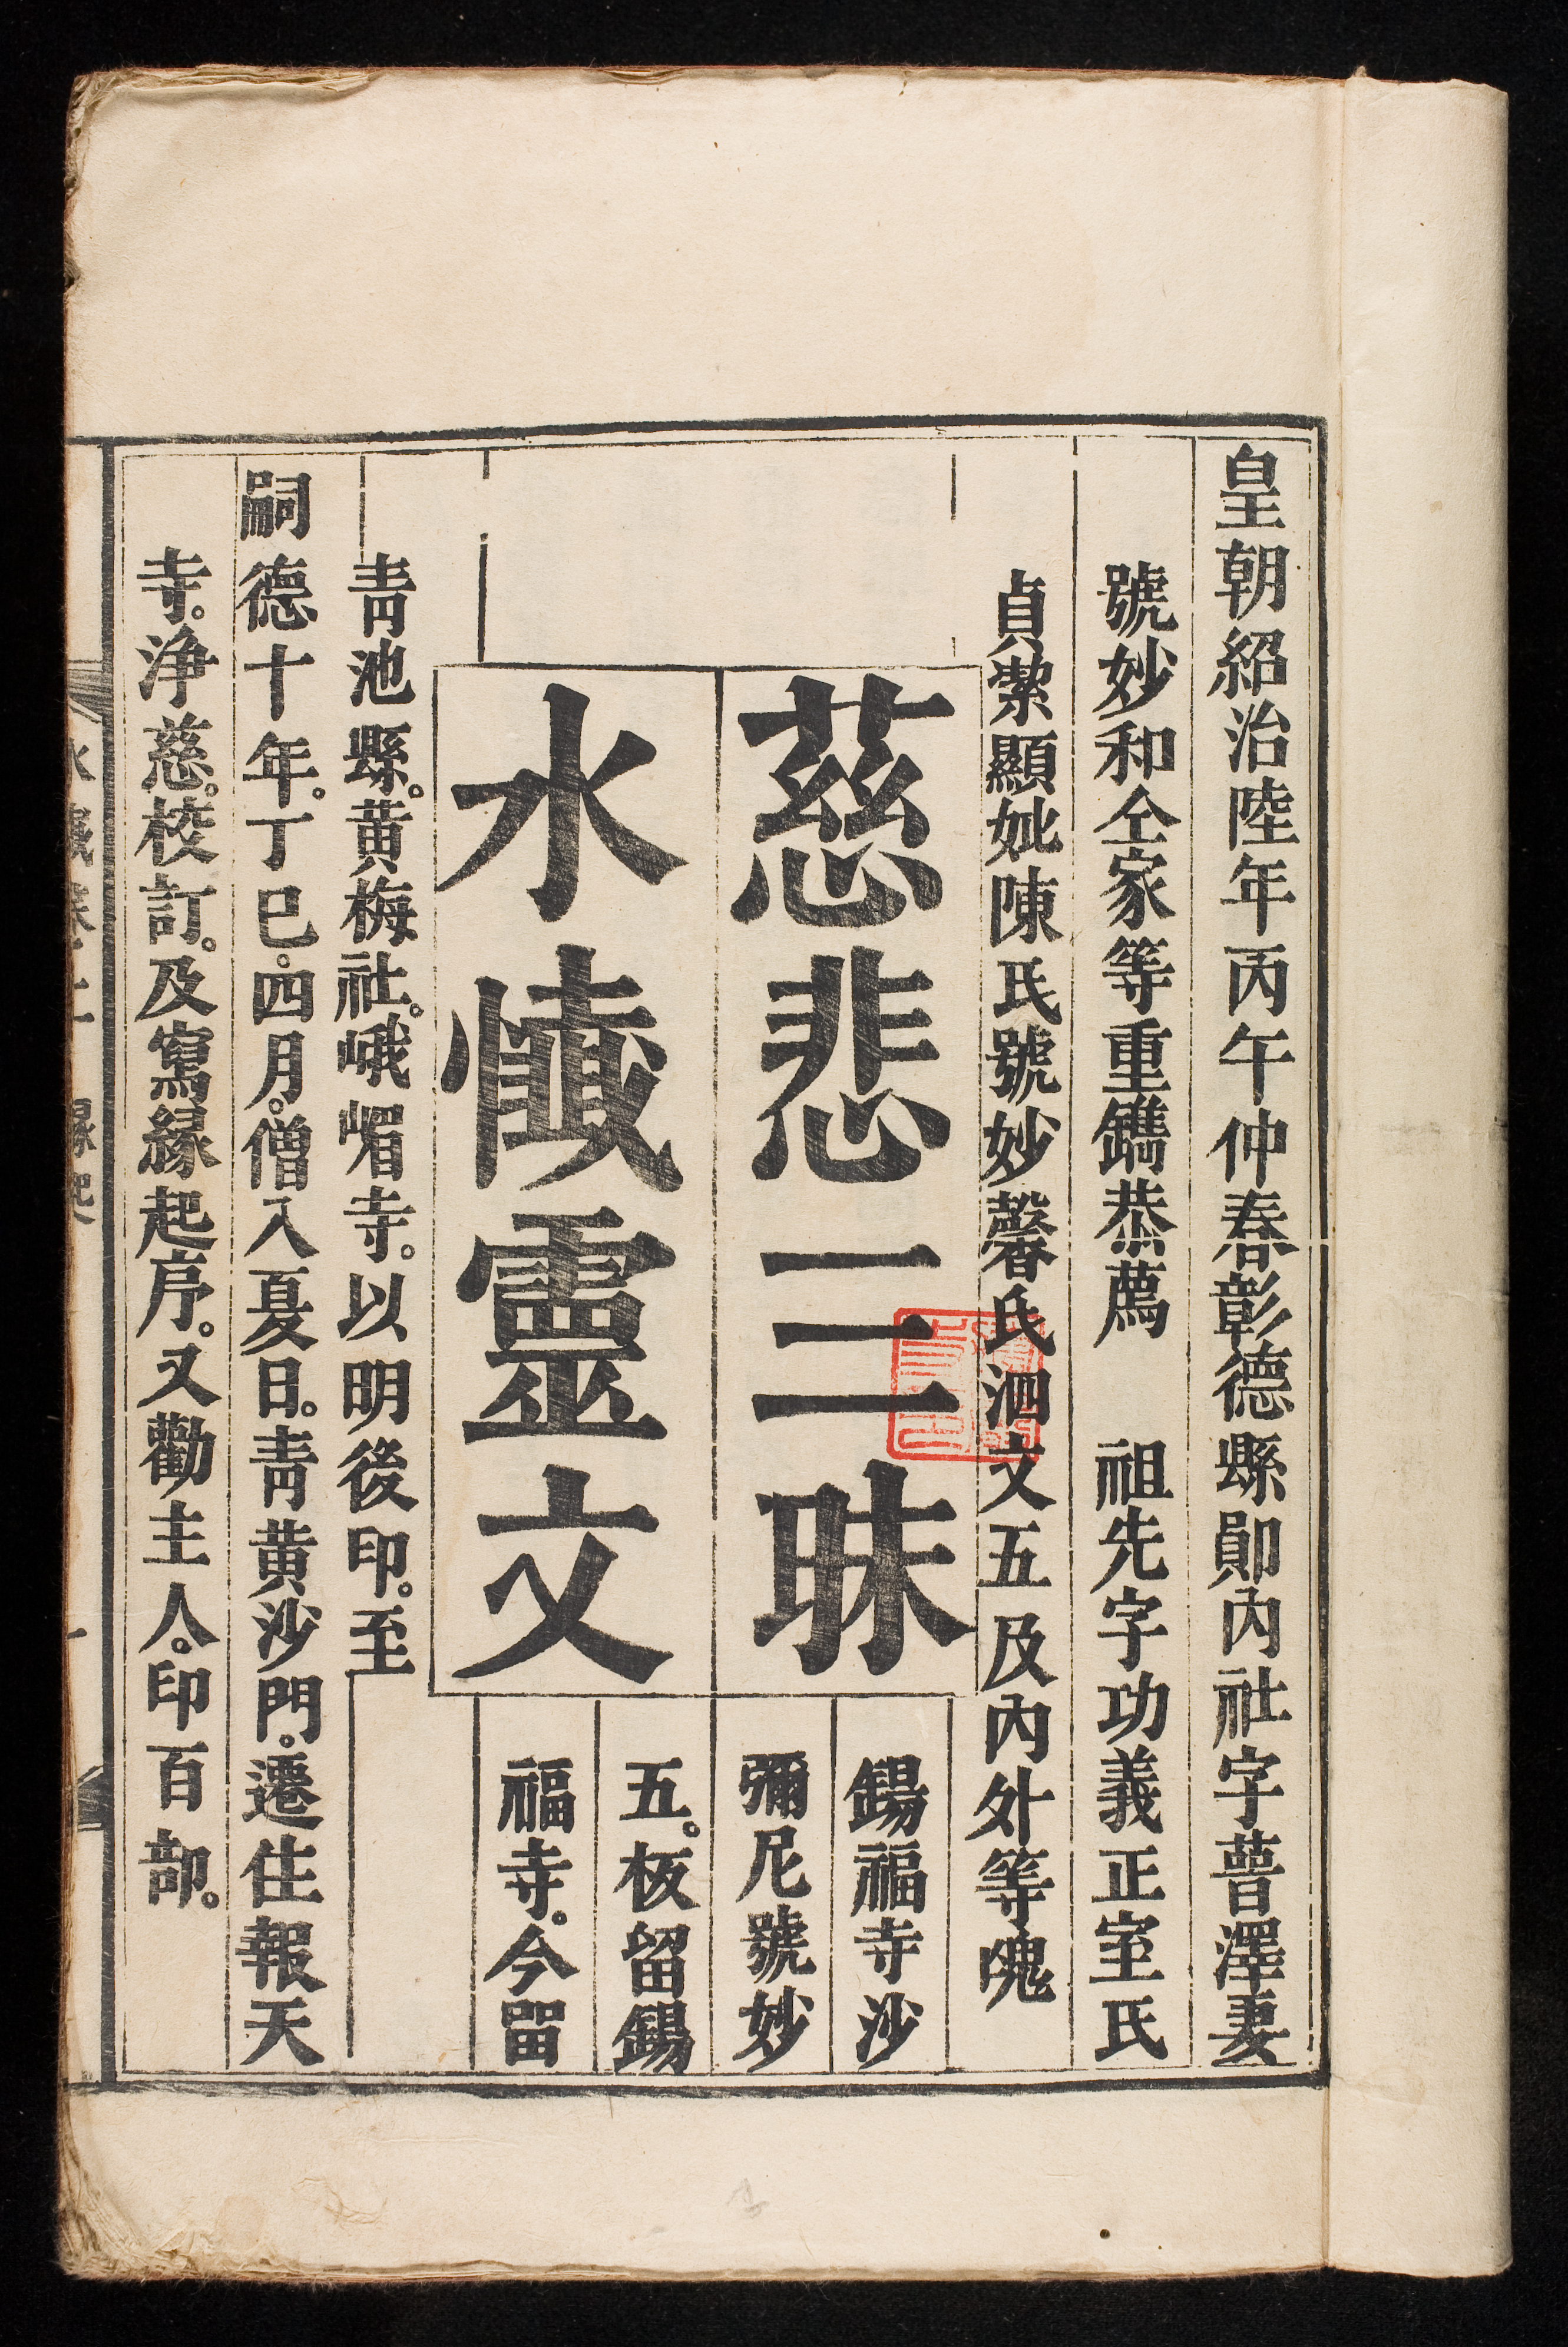 皇朝紹治陸年丙午仲春彰德縣鄖內社字瞢澤妻
號妙和仝家等重鐫恭薦 祖先字功義正室氏
貞潔顯妣陳氏號妙馨氏泗文五及內外等魂
慈悲三昧
水懺靈文
錫福寺沙
彌尼號妙
五。板留錫
福寺。今留
青池縣。黄梅社。峨嵋寺。以明後印。至
嗣德十年。丁巳。四月。僧入夏日。青黄沙門。遷住報天
寺。净慈。校訂。及寫緣起序。又勸主人。印百部。
水懺卷上 緣起 一